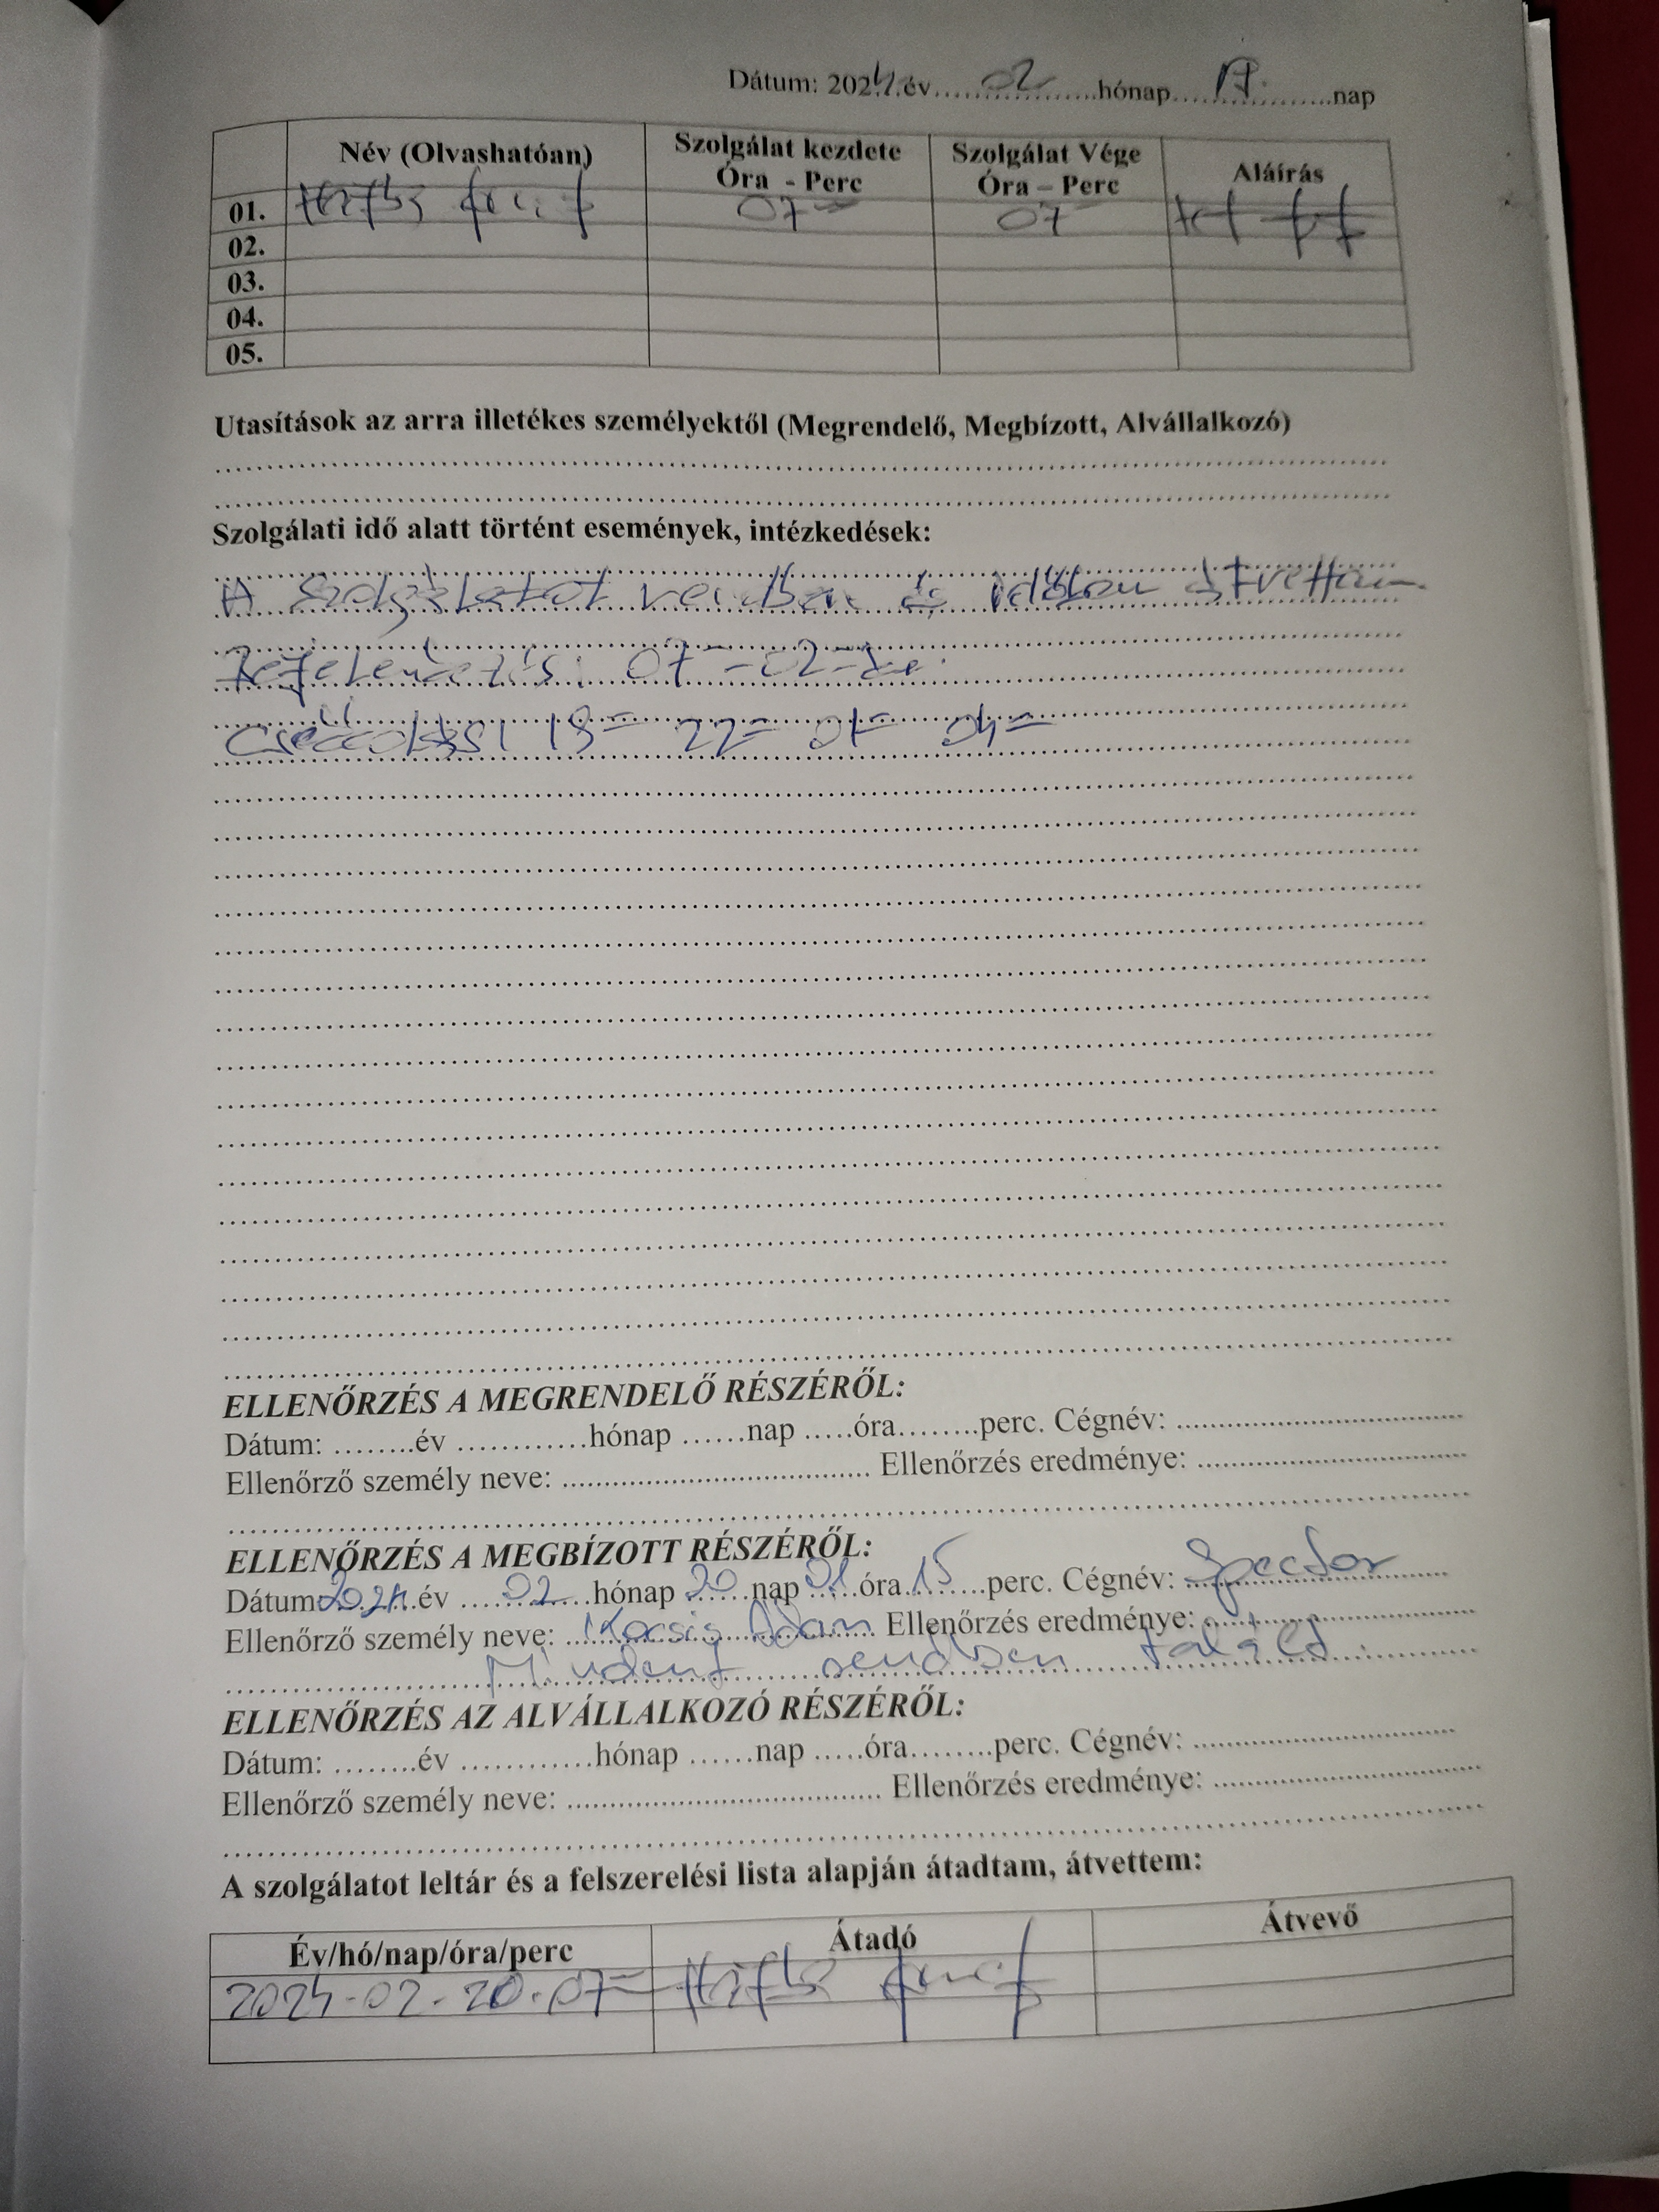 Dátum: 2024.év 02 hónap 19. nap
Név (Olvashatóan) Szolgálat kezdete Óra - Perc Szolgálat Vége Óra – Perc Aláírás
01. 07 07
02.
03.
04.
05.
Utasítások az arra illetékes személyektől (Megrendelő, Megbízott, Alvállalkozó)
Szolgálati idő alatt történt események, intézkedések:
A Szolgálatot rendben és időben átvettem
07
19 22 01 04
ELLENŐRZÉS A MEGRENDELŐ RÉSZÉRŐL:
Dátum: ........év ............hónap ......nap .....óra........perc. Cégnév: ..............................
Ellenőrző személy neve: .................................... Ellenőrzés eredménye: ..............................
ELLENŐRZÉS A MEGBÍZOTT RÉSZÉRŐL:
Dátum 2024 év 02 hónap 20 nap 01 óra 15 perc. Cégnév: Spector
Ellenőrző személy neve: Kocsis Ádám Ellenőrzés eredménye:
Mindent rendben talált.
ELLENŐRZÉS AZ ALVÁLLALKOZÓ RÉSZÉRŐL:
Dátum: ........év ............hónap ......nap .....óra........perc. Cégnév: ..............................
Ellenőrző személy neve: .................................... Ellenőrzés eredménye: ..............................
A szolgálatot leltár és a felszerelési lista alapján átadtam, átvettem:
Év/hó/nap/óra/perc Átadó Átvevő
2024-02-20.07